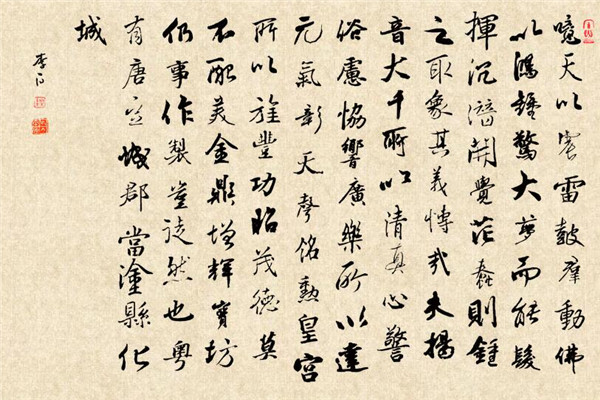 噫天以震雷鼓羣動佛
以鴻鍾驚大夢而能髮
揮沉潛開覺茫蠢則鍾
之取象其義博哉夫揚
音大千所以清真心警
俗慮協響廣樂所以達
元氣彰天聲銘勳皇宮
所以旌豐功昭茂德莫
不配美金鼎增輝寶坊
仍事作製豈徒然也粵
有唐宣城郡當塗縣化
城
李白